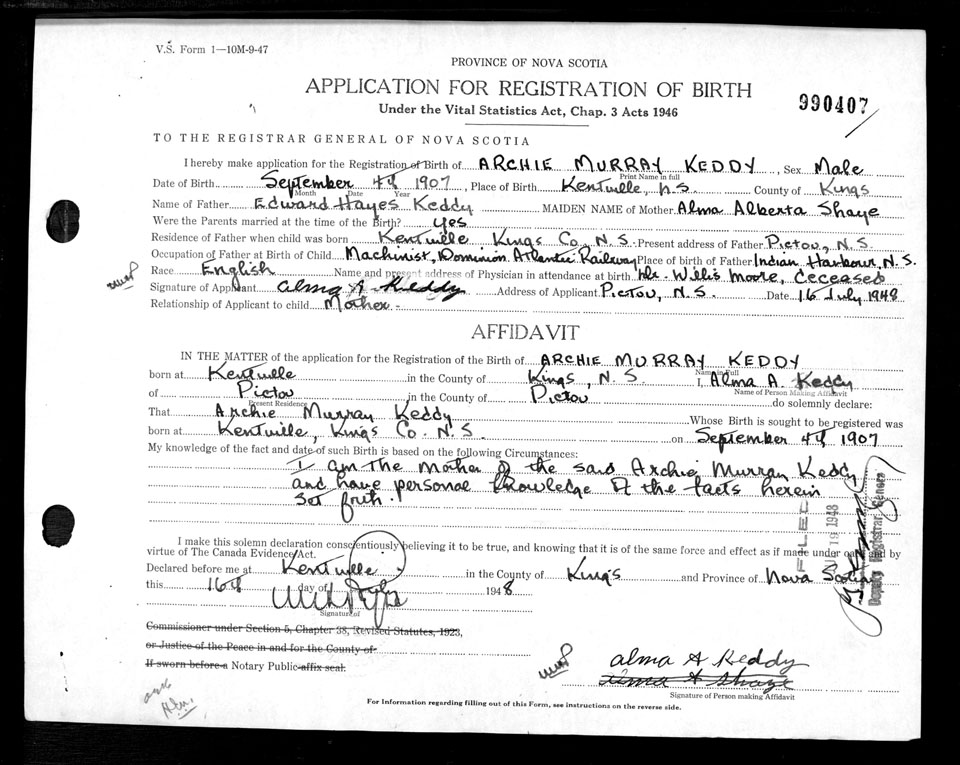 V.S. Form 1—10M-9-47
PROVINCE OF NOVA SCOTIA
APPLICATION FOR REGISTRATION OF BIRTH
Under the Vital Statistics Act, Chap. 3 Acts 1946
990407
TO THE REGISTRAR GENERAL OF NOVA SCOTIA
I hereby make application for the Registration of Birth of ARCHIE MURRAY KEDDY, Sex Male
Print Name in full
Date of Birth September 4th 1907, Place of Birth Kentville, N.S. County of Kings
Month Date Year
Name of Father Edward Hayes Keddy MAIDEN NAME of Mother Alma Alberta Shaye
Were the Parents married at the time of the Birth? Yes
Residence of Father when child was born Kentville Kings Co., N.S. Present address of Father Pictou, N.S.
Occupation of Father at Birth of Child Machinist, Dominion Atlantic Railway Place of birth of Father Indian Harbour, N.S.
Race English Name and present address of Physician in attendance at birth Dr. Willis Moore, deceased
Signature of Applicant Alma A Keddy Address of Applicant Pictou, N.S. Date 16 July 1948
Relationship of Applicant to child Mother
AFFIDAVIT
IN THE MATTER of the application for the Registration of the Birth of ARCHIE MURRAY KEDDY
Name in Full
born at Kentville in the County of Kings, N.S. I, Alma A. Keddy
Name of Person Making Affidavit
of Pictou in the County of Pictou do solemnly declare:
Present Residence
That Archie Murray Keddy Whose Birth is sought to be registered was
born at Kentville, Kings Co. N.S. on September 4th, 1907
My knowledge of the fact and date of such Birth is based on the following Circumstances:
I am the mother of the said Archie Murray Keddy
and have personal knowledge of the facts herein
set forth.
FILED
19 1948
Deputy Registrar General
I make this solemn declaration conscientiously believing it to be true, and knowing that it is of the same force and effect as if made under oath and by
virtue of The Canada Evidence Act.
Declared before me at Kentville in the County of Kings and Province of Nova Scotia
this 16th day of July 1948
Signature of
Commissioner under Section 5, Chapter 38, Revised Statutes, 1923,
or Justice of the Peace in and for the County of
If sworn before a Notary Public affix seal.
Alma A Keddy
Alma A Shaye
Signature of Person making Affidavit
For Information regarding filling out of this Form, see instructions on the reverse side.